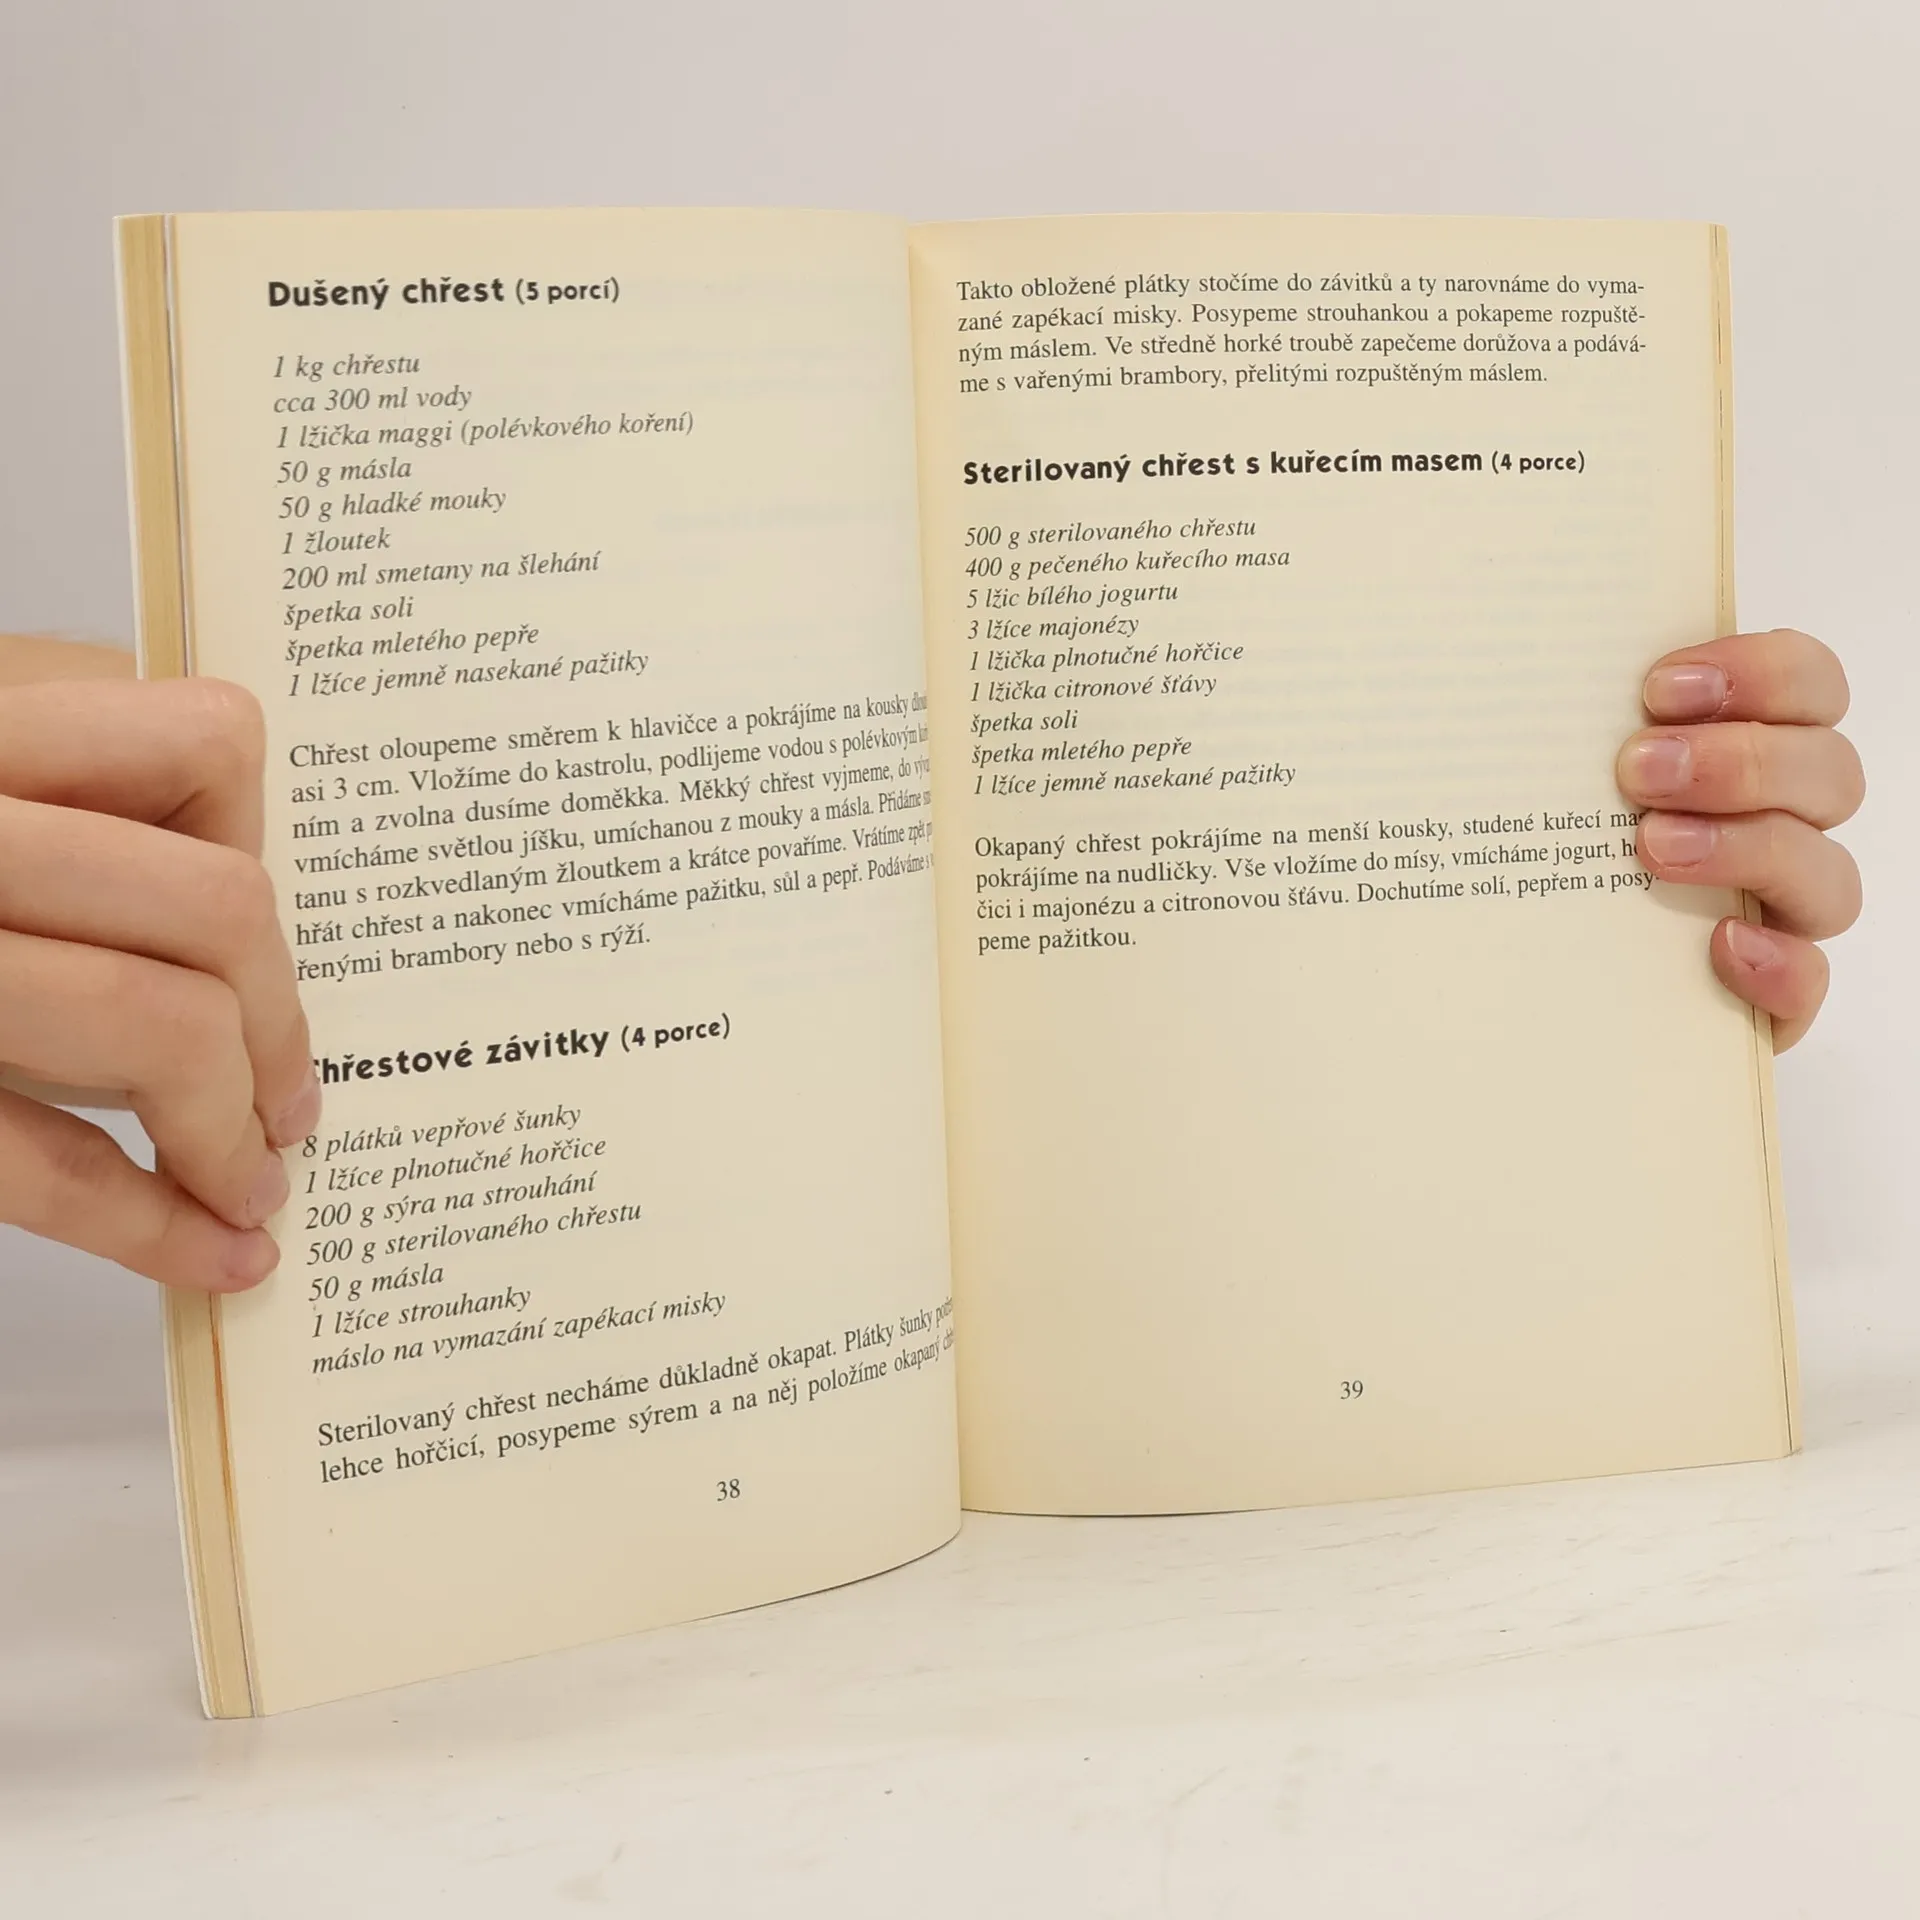 Dušený chřest (5 porcí)
1 kg chřestu
cca 300 ml vody
1 lžička maggi (polévkového koření)
50 g másla
50 g hladké mouky
1 žloutek
200 ml smetany na šlehání
špetka soli
špetka mletého pepře
1 lžíce jemně nasekané pažitky
Chřest oloupeme směrem k hlavičce a pokrájíme na kousky
asi 3 cm. Vložíme do kastrolu, podlijeme vodou s polévkovým
ním a zvolna dusíme doměkka. Měkký chřest vyjmeme, do
vmícháme světlou jíšku, umíchanou z mouky a másla. Přidáme
tanu s rozkvedlaným žloutkem a krátce povaříme. Vrátíme zpět
hřát chřest a nakonec vmícháme pažitku, sůl a pepř. Podáváme s
řenými brambory nebo s rýží.
hřestové závitky (4 porce)
8 plátků vepřové šunky
1 lžíce plnotučné hořčice
200 g sýra na strouhání
500 g sterilovaného chřestu
50 g másla
1 lžíce strouhanky
máslo na vymazání zapékací misky
Sterilovaný chřest necháme důkladně okapat. Plátky šunky
lehce hořčicí, posypeme sýrem a na něj položíme okapaný
38
Takto obložené plátky stočíme do závitků a ty narovnáme do vyma-
zané zapékací misky. Posypeme strouhankou a pokapeme rozpuště-
ným máslem. Ve středně horké troubě zapečeme dorůžova a podává-
me s vařenými brambory, přelitými rozpuštěným máslem.
Sterilovaný chřest s kuřecím masem (4 porce)
500 g sterilovaného chřestu
400 g pečeného kuřecího masa
5 lžic bílého jogurtu
3 lžíce majonézy
1 lžička plnotučné hořčice
1 lžička citronové šťávy
špetka soli
špetka mletého pepře
1 lžíce jemně nasekané pažitky
Okapaný chřest pokrájíme na menší kousky, studené kuřecí
pokrájíme na nudličky. Vše vložíme do mísy, vmícháme jogurt,
čici i majonézu a citronovou šťávu. Dochutíme solí, pepřem a posy-
peme pažitkou.
39